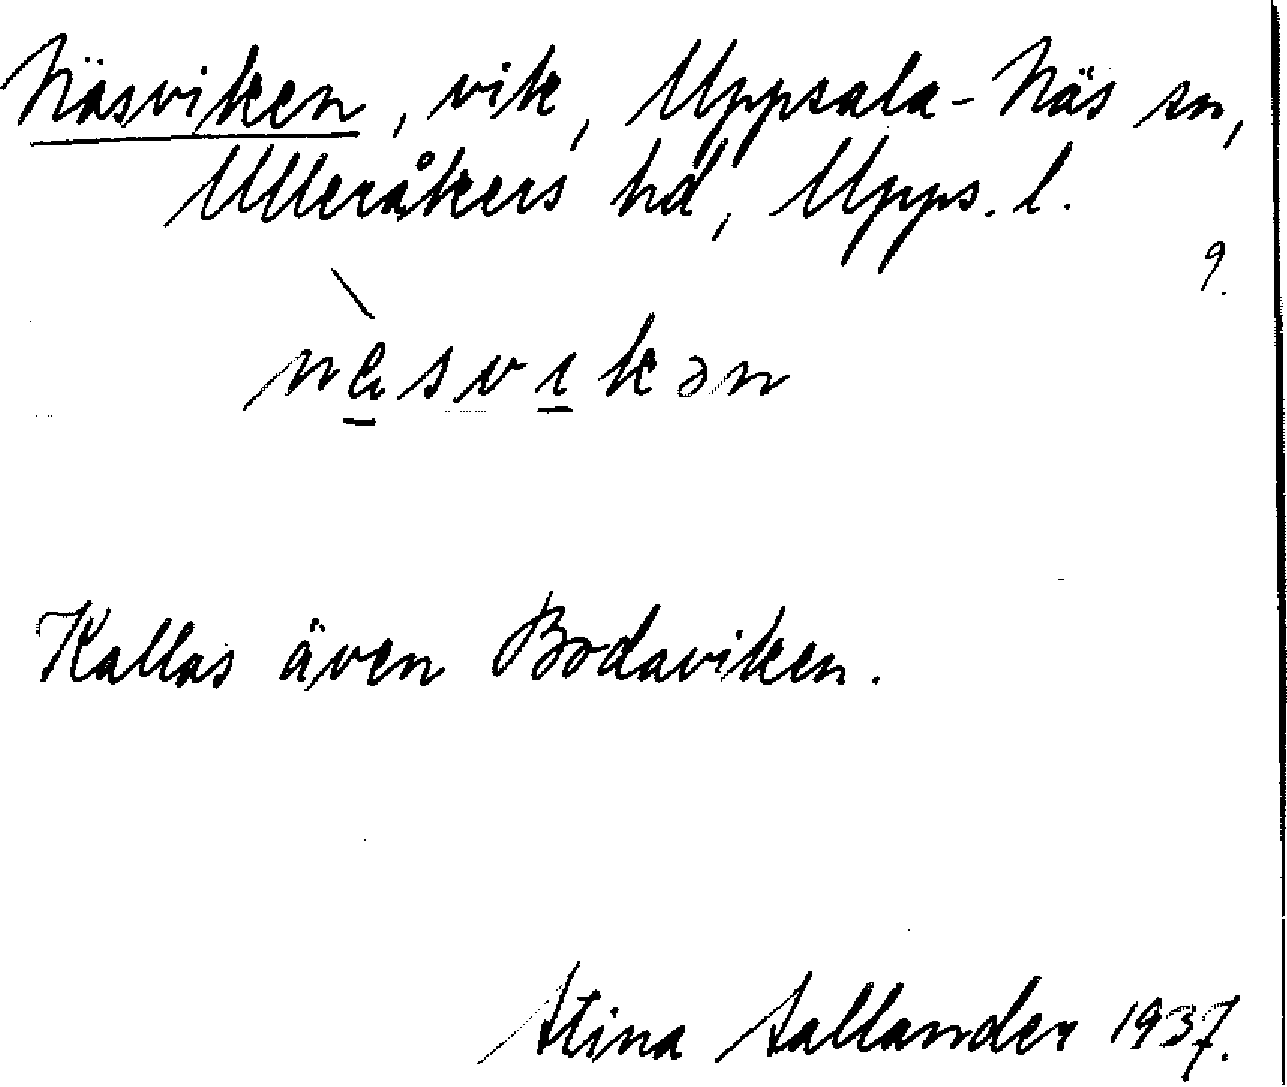 Näsviken, vik, Uppsala-Näs sn,
Ulleråkers hd, Upps. l.
9.
nèsvikən
Kallas även Bodaviken.
Stina Sallander 1937.